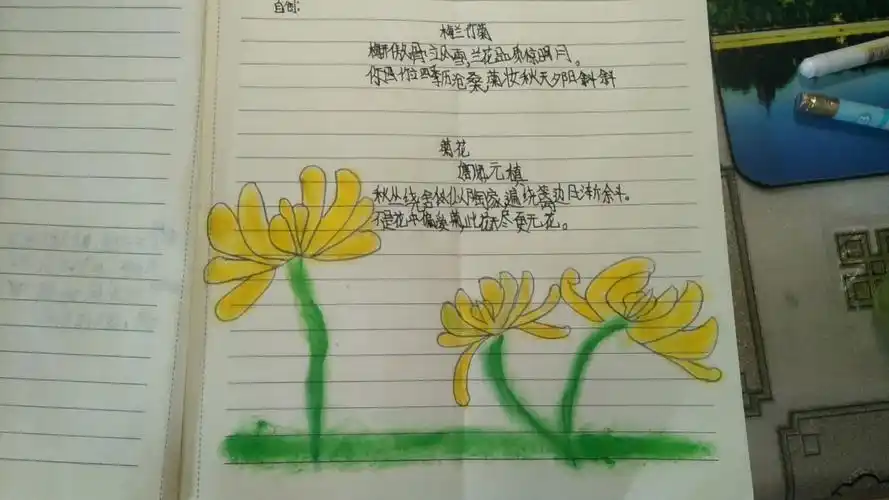 自创:
梅兰竹菊
梅开傲骨立风雪,兰花品质惊明月。
竹四季历沧桑,菊妆秋天夕阳斜斜
菊花
唐 元稹
秋丛绕舍似陶家,遍绕篱边日渐斜。
不是花中偏爱菊,此花开尽更无花。